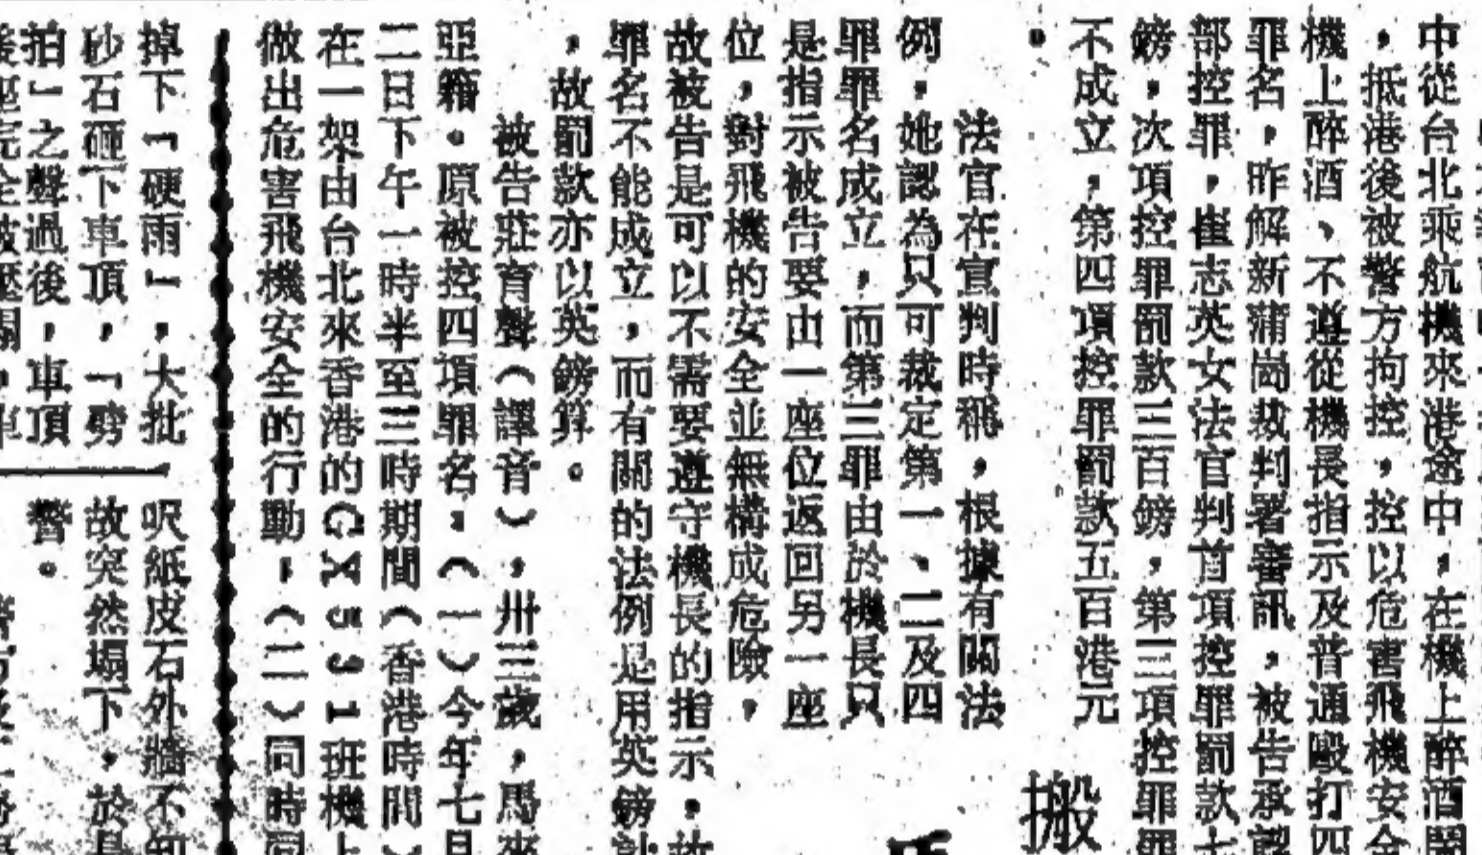 中從台北乘航機來港途中，在機上醉酒鬧
，抵港後被警方拘控，控以危害飛機安全
機上醉酒、不遵從機長指示及普通毆打四
罪名，昨解新蒲崗裁判署審訊，被告承認
部控罪，崔志英女法官判首項控罪罰款七
鎊，次項控罪罰款三百鎊，第三項控罪罪
不成立，第四項控罪罰款五百港元
。
法官在宣判時稱，根據有關法
例，她認為只可裁定第一、二及四
罪罪名成立，而第三罪由於機長只
是指示被告要由一座位返回另一座
位，對飛機的安全並無構成危險，
故被告是可以不需要遵守機長的指示。故
罪名不能成立，而有關的法例是用英鎊計
，故罰款亦以英鎊算。
被告莊育聲（譯音），卅三歲，馬來
亞籍。原被控四項罪名：（一）今年七月
二日下午一時半至三時期間（香港時間）
在一架由台北來香港的CX531班機上
做出危害飛機安全的行動，（二）同時同
搬
掉下「硬雨」，大批
砂石砸下車頂，「劈
拍」之聲過後，車頂
呎紙皮石外牆不知
故突然塌下，於是
警。